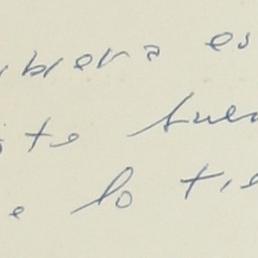 brera es
ste sue
e lo tie